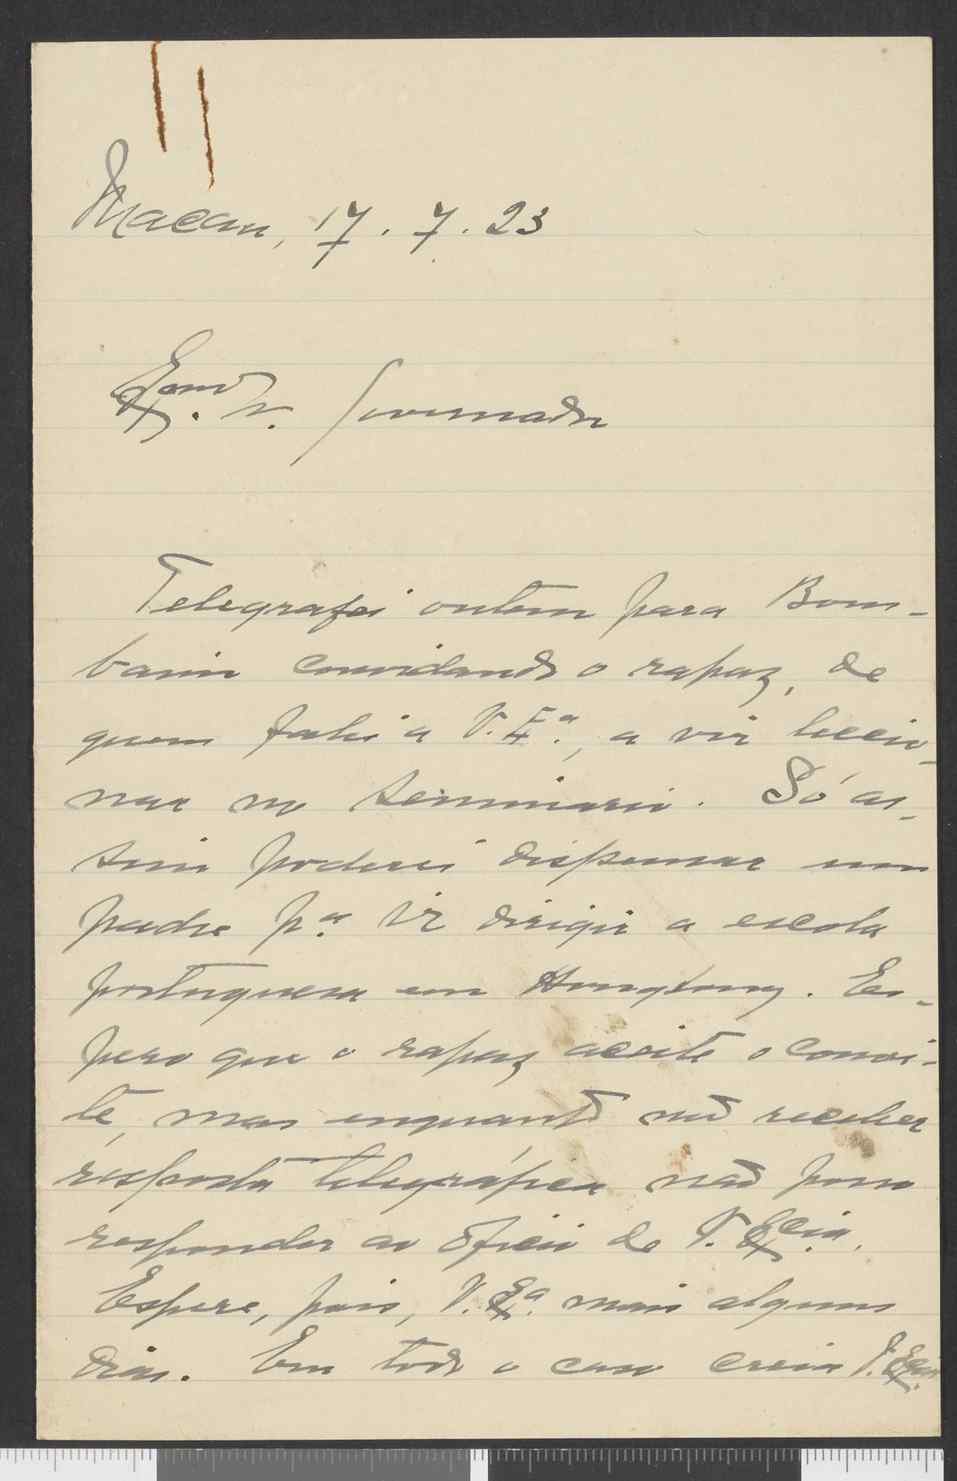 Macau, 17.7.23
Exmo. Sr. Governador
Telegrafei ontem para Bom-
baim convidando o rapaz, de
quem falei a V. Exa., a vir leccio-
nar no Seminario. Só as-
sim poderei dispensar um
padre pa. ir dirigir a escola
portuguesa em Hongkong. Es-
pero que o rapaz aceite o convi-
te, mas enquanto não receber
resposta telegráfica não posso
responder ao oficio de V. Excia.
Espere, pois, V. Exa. mais alguns
dias. Em todo o caso creia V. Excia.